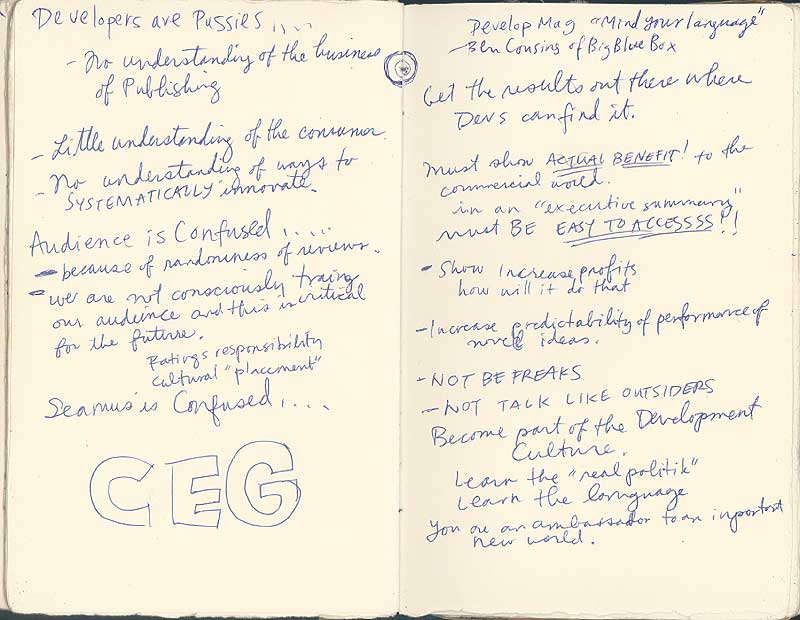 Developers are Pussies ....
- no understanding of the business
of Publishing
- Little understanding of the consumer.
- No understanding of ways to
SYSTEMATICALLY innovate.
Audience is Confused .....
- because of randomness of reviews.
- we are not consciously traing
our audience and this is critical
for the future.
Ratings responsibility
cultural "placement"
Seamus is Confused ....
CEG
Develop Mag "Mind your language"
- Ben Cousins of Big Blue Box
Get the results out there where
Devs can find it.
Must show ACTUAL BENEFIT! to the
commercial world.
in an "executive summary"
must BE EASY TO ACCESSSS!!
- Show Increase profits
how will it do that
- Increase predictability of performance of
novel ideas.
- NOT BE FREAKS
- NOT TALK LIKE OUTSIDERS
Become part of the Development
Culture.
Learn the "real politik"
Learn the language
You are an ambassador to an important
new world.